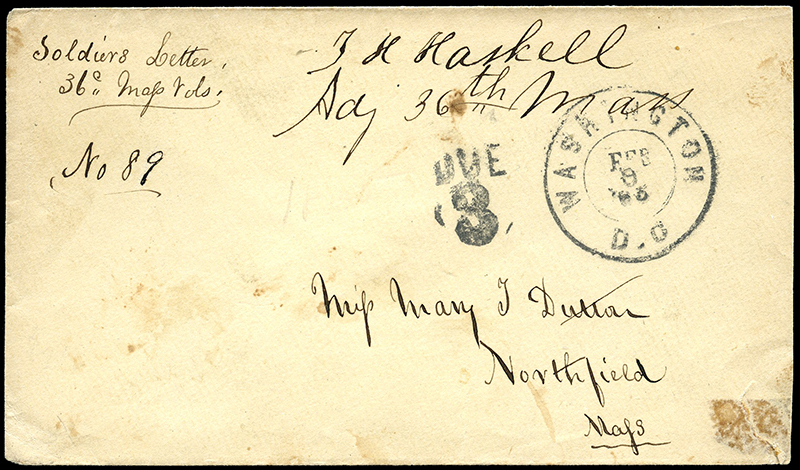 Soldiers Letter.
36th Mass Vols.
No 89
T H Haskell
Adj 36th Mass
DUE
3
WASHINGTON
FEB
9
'65
D.C
Miss Mary T Dutton
Northfield
Mass